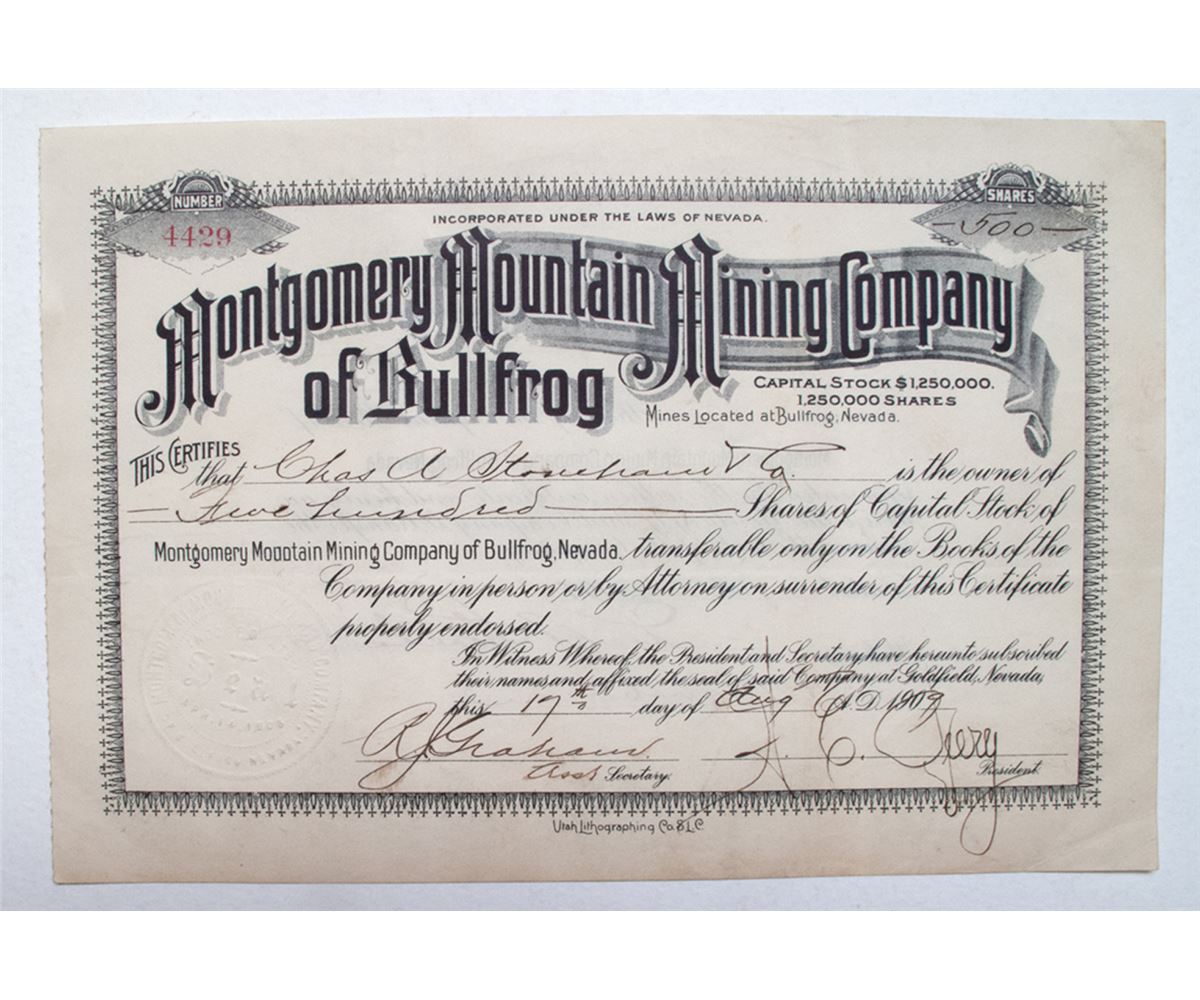 NUMBER
4429
SHARES
—500—
INCORPORATED UNDER THE LAWS OF NEVADA.
Montgomery Mountain Mining Company
of Bullfrog
CAPITAL STOCK $1,250,000.
1,250,000 SHARES
Mines Located at Bullfrog, Nevada.
THIS CERTIFIES
that Chas A Stoneham & Co is the owner of
— Five hundred — Shares of Capital Stock of
Montgomery Mountain Mining Company of Bullfrog, Nevada. transferable only on the Books of the
Company in person or by Attorney on surrender of this Certificate
properly endorsed.
In Witness Whereof, the President and Secretary have hereunto subscribed
their names and affixed the seal of said Company at Goldfield, Nevada,
this 17th day of Aug A.D. 1909
R J Graham
Asst Secretary.
President.
Utah Lithographing Co. S.L.C.